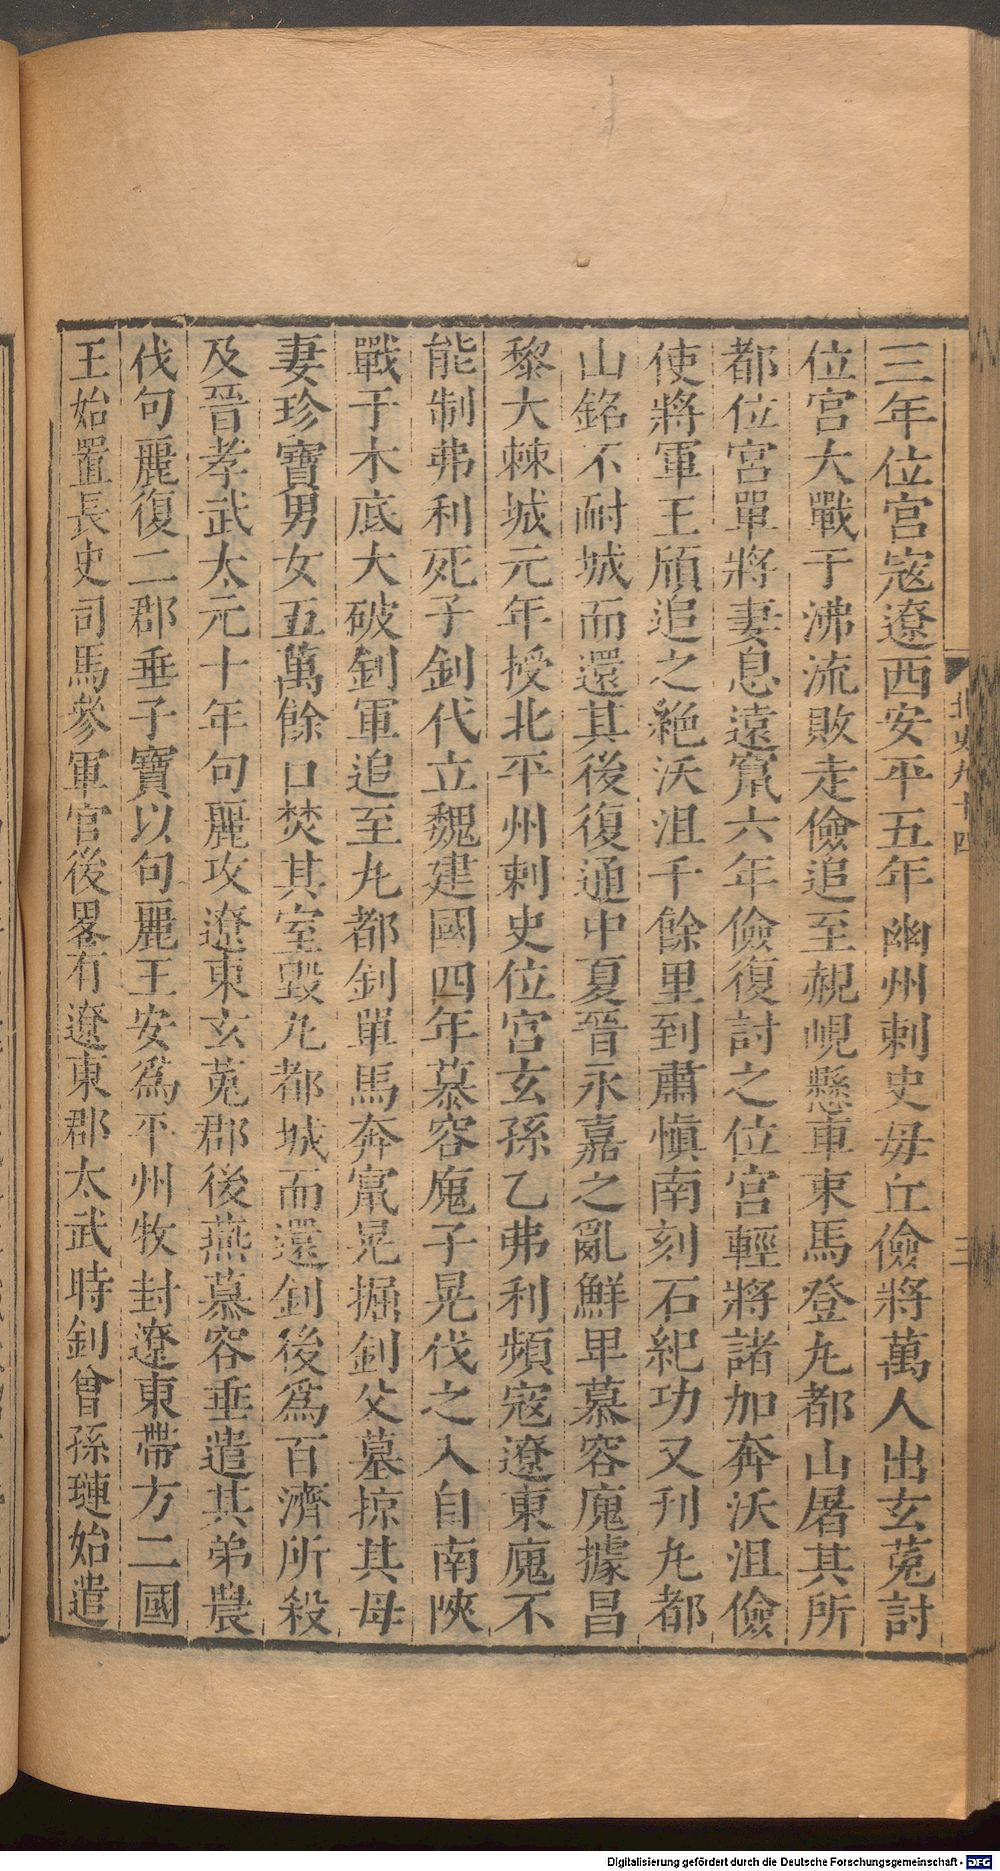 北史九十四
三
三年位宮寇遼西安平五年幽州刺史毋丘儉將萬人出玄菟討
位宮大戰于沸流敗走儉追至䞓峴懸車束馬登丸都山屠其所
都位宮單將妻息遠竄六年儉復討之位宮輕將諸加奔沃沮儉
使將軍王頎追之絶沃沮千餘里到肅愼南刻石紀功又刋丸都
山銘不耐城而還其後復通中夏晉永嘉之亂鮮卑慕容廆據昌
黎大棘城元年授北平州刺史位宮玄孫乙弗利頻寇遼東廆不
能制弗利死子釗代立魏建國四年慕容廆子晃伐之入自南陝
戰于木底大破釗軍追至丸都釗單馬奔竄晃掘釗父墓掠其母
妻珍寶男女五萬餘口焚其室毀丸都城而還釗後爲百濟所殺
及晉孝武太元十年句麗攻遼東玄菟郡後燕慕容垂遣其弟農
伐句麗復二郡垂子寶以句麗王安爲平州牧封遼東帶方二國
王始置長史司馬參軍官後畧有遼東郡太武時釗曾孫璉始遣
Digitalisierung gefördert durch die Deutsche Forschungsgemeinschaft - DFG